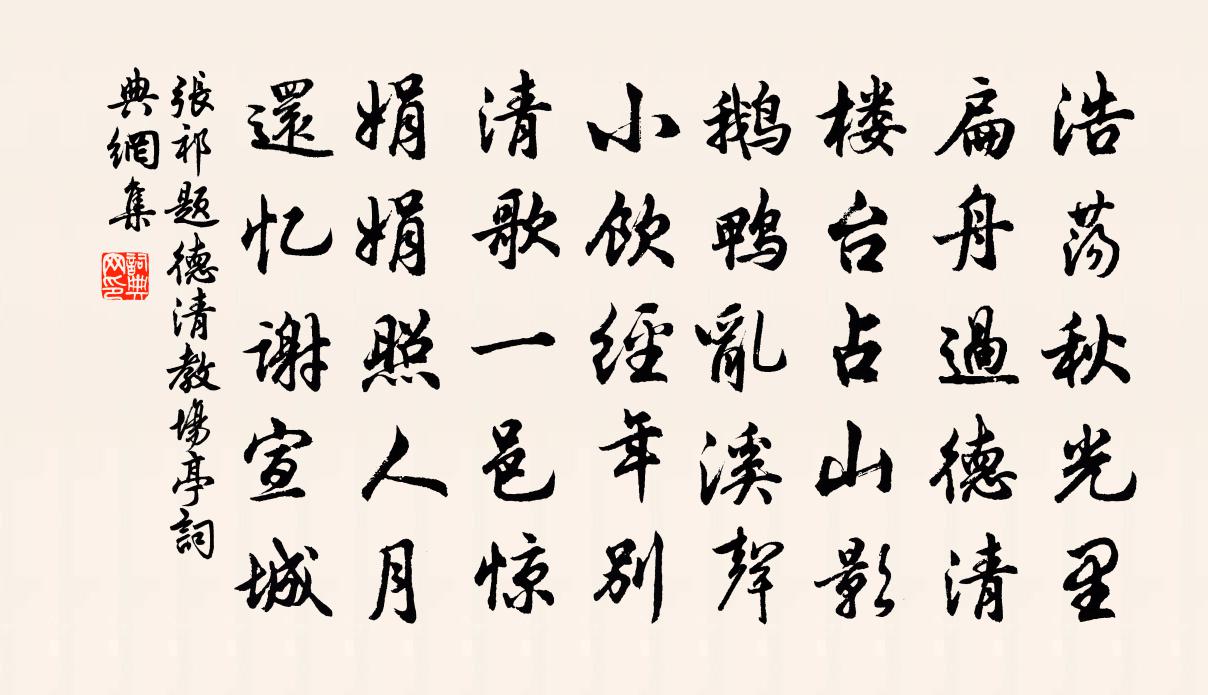 浩荡秋光里
扁舟過德清
楼台占山影
鹅鸭亂溪聲
小饮經年别
清歌一邑惊
娟娟照人月
還忆谢宣城
張祁題德清教場亭詞
典網集
詞典網印